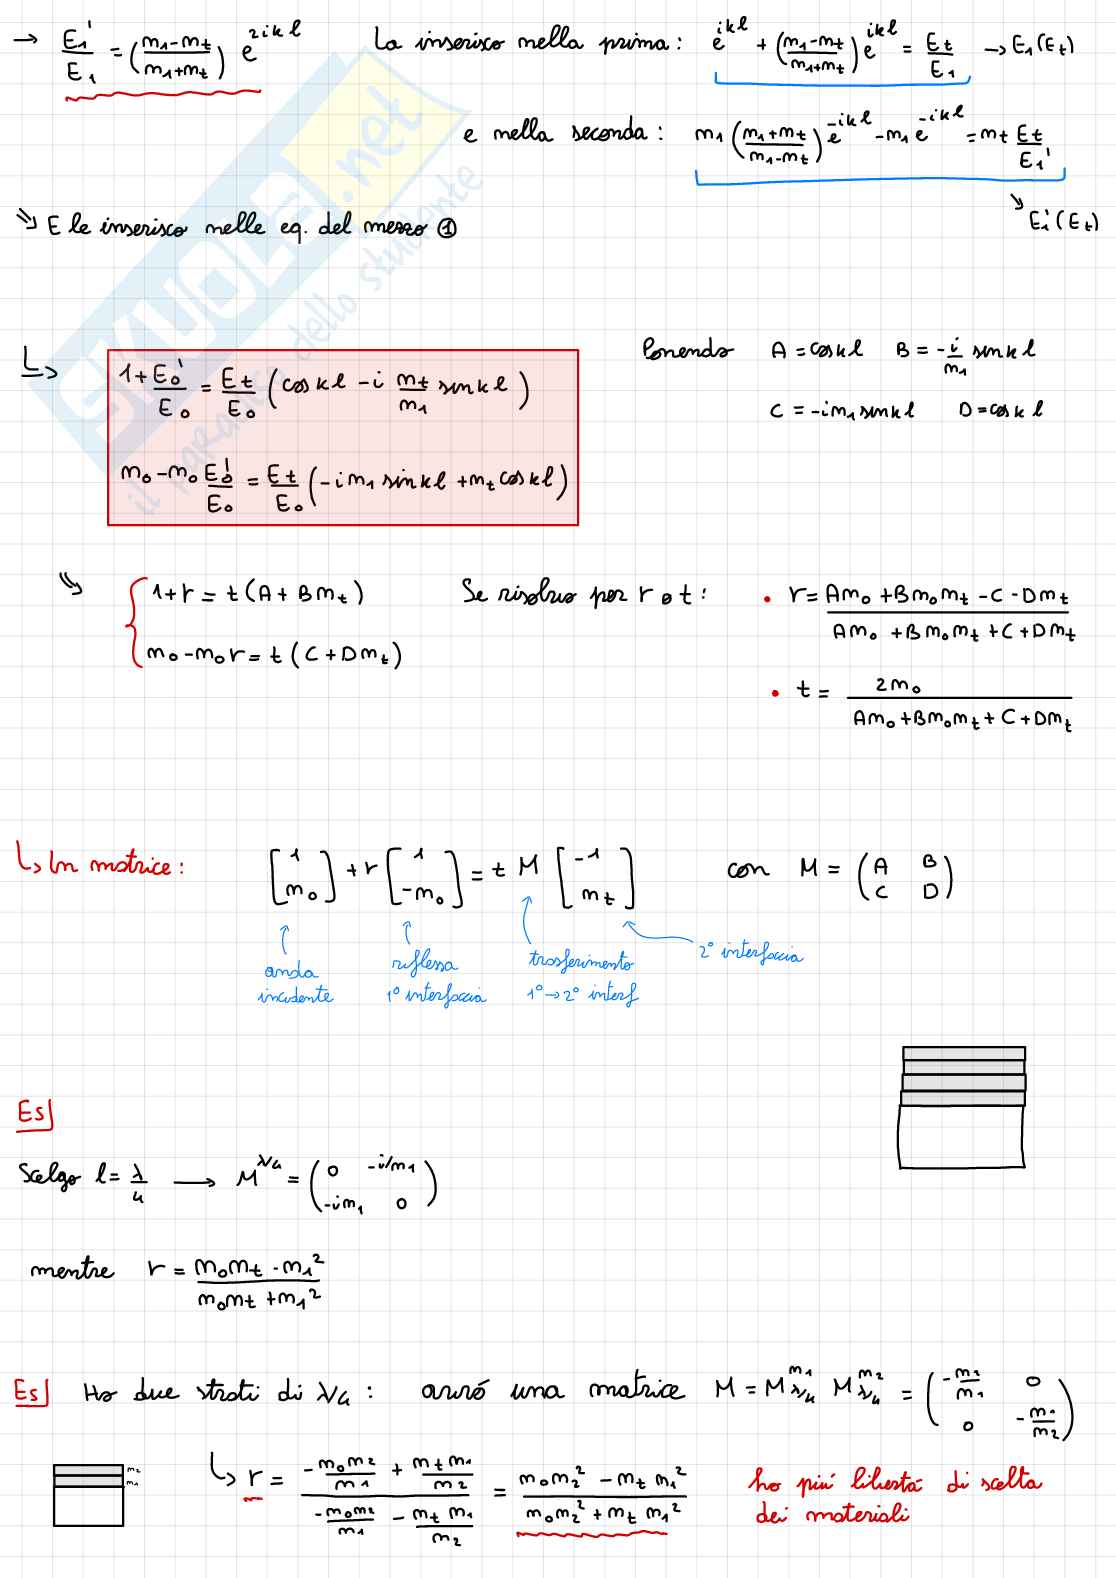 → E₁'/E₁ = ((m₁-m_t)/(m₁+m_t)) e^{2ikl}   La inserisco nella prima: e^{ikl} + ((m₁-m_t)/(m₁+m_t)) e^{ikl} = E_t/E₁ → E₁(E_t)
e nella seconda: m₁ ((m₁+m_t)/(m₁-m_t)) e^{-ikl} - m₁ e^{-ikl} = m_t E_t/E₁'
↘ E₁'(E_t)
⇒ E le inserisco nelle eq. del mezzo ①
↳ 1 + E₀'/E₀ = E_t/E₀ (cos kl - i m_t/m₁ sin kl)
m₀ - m₀ E₀'/E₀ = E_t/E₀ (-i m₁ sin kl + m_t cos kl)
Ponendo   A = cos kl   B = -i/m₁ sin kl
C = -i m₁ sin kl   D = cos kl
⇒ { 1 + r = t (A + B m_t)
m₀ - m₀ r = t (C + D m_t)
Se risolvo per r e t :   • r = (A m₀ + B m₀ m_t - C - D m_t)/(A m₀ + B m₀ m_t + C + D m_t)
• t = 2m₀/(A m₀ + B m₀ m_t + C + D m_t)
↳ In matrice : [1 m₀] + r [1 -m₀] = t M [-1 m_t]   con   M = (A B C D)
onda incidente
riflessa 1° interfaccia
trasferimento 1° → 2° interf
2° interfaccia
Es]
Scelgo l = λ/4 → M^{λ/4} = (0 -i/m₁ -im₁ 0)
mentre r = (m₀m_t - m₁²)/(m₀m_t + m₁²)
Es] Ho due strati di λ/4 : avrò una matrice M = M^{m₁}_{λ/4} M^{m₂}_{λ/4} = (-m₂/m₁ 0 0 -m₁/m₂)
m₂
m₁
↳ r = (-m₀m₂/m₁ + m_t m₁/m₂)/(-m₀m₂/m₁ - m_t m₁/m₂) = (m₀m₂² - m_t m₁²)/(m₀m₂² + m_t m₁²)
ho più libertà di scelta
dei materiali
SKUOLA.net
il paradiso dello studente